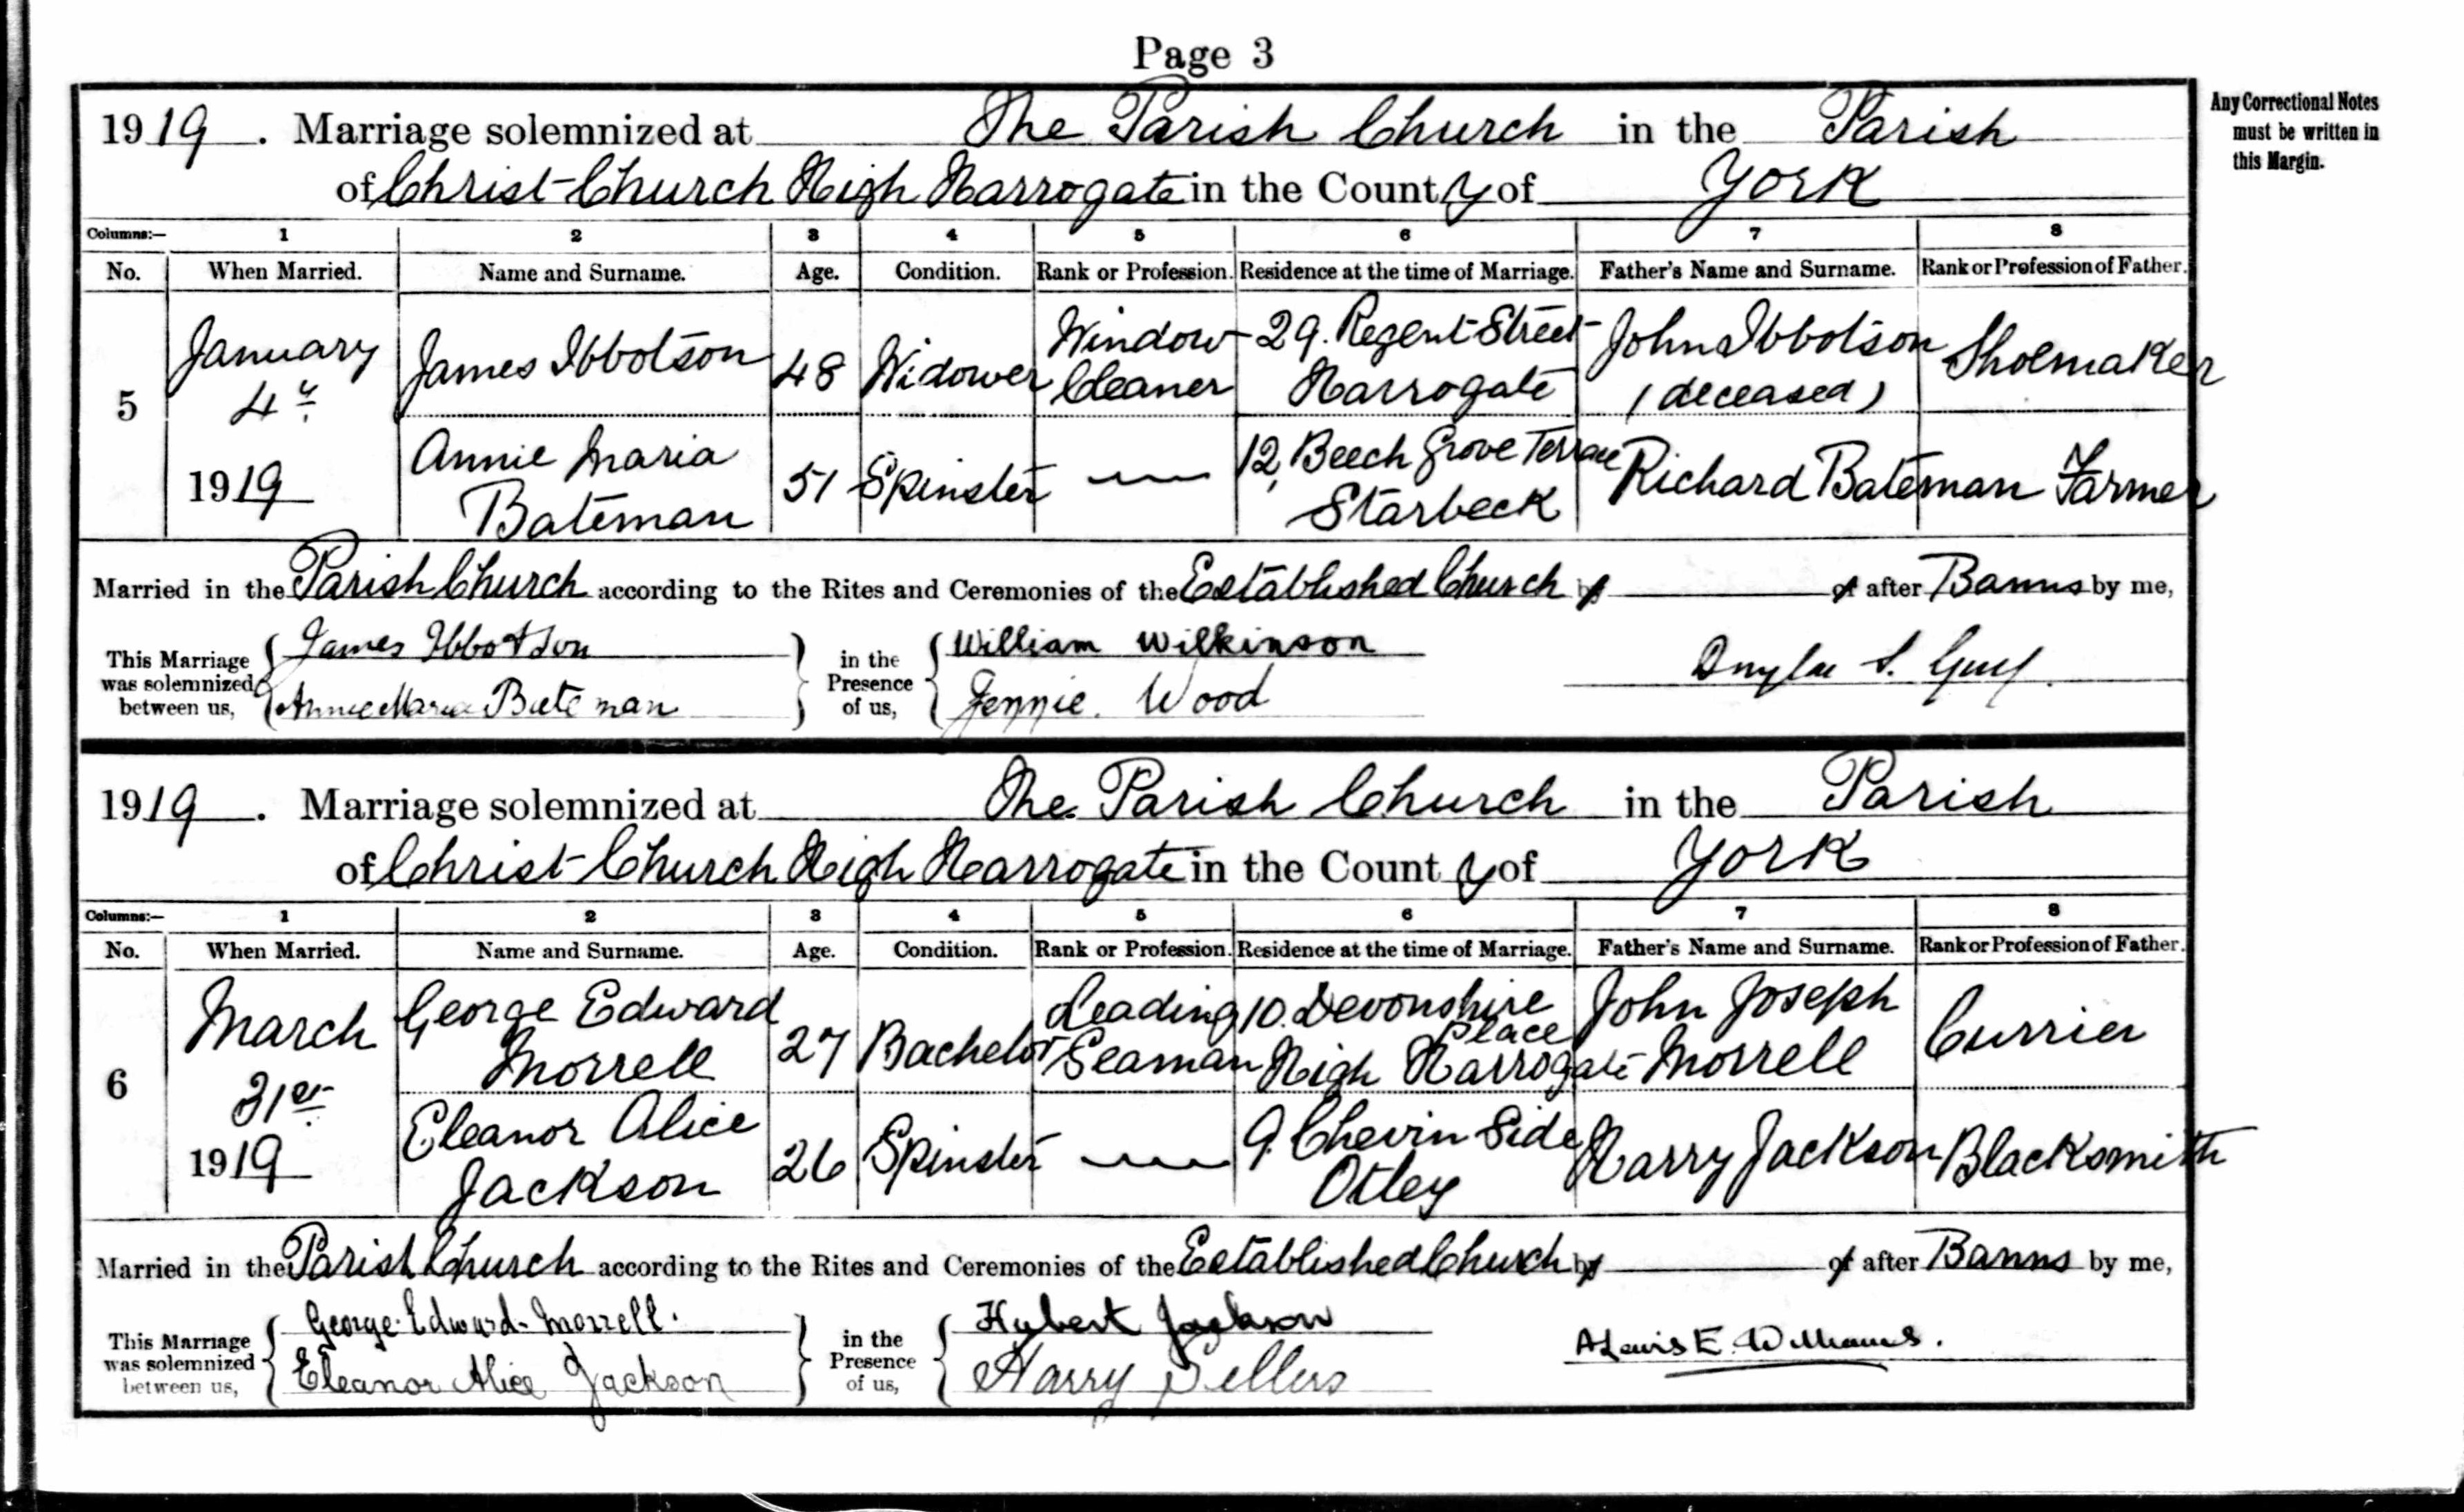 Page 3
Any Correctional Notes
must be written in
this Margin.
1919. Marriage solemnized at The Parish Church in the Parish
of Christ Church High Harrogate in the County of York
Columns:— 1 2 3 4 5 6 7 8
No. When Married. Name and Surname. Age. Condition. Rank or Profession. Residence at the time of Marriage. Father's Name and Surname. Rank or Profession of Father.
5 January 4th 1919 James Ibbotson 48 Widower Window Cleaner 29. Regent Street Harrogate John Ibbotson (deceased) Shoemaker
Annie Maria Bateman 51 Spinster — 12, Beech Grove Terrace Starbeck Richard Bateman Farmer
Married in the Parish Church according to the Rites and Ceremonies of the Established Church by or after Banns by me,
This Marriage was solemnized between us, James Ibbotson in the Presence of us, William Wilkinson
Annie Maria Bateman Jennie Wood
1919. Marriage solemnized at The Parish Church in the Parish
of Christ Church High Harrogate in the County of York
Columns:— 1 2 3 4 5 6 7 8
No. When Married. Name and Surname. Age. Condition. Rank or Profession. Residence at the time of Marriage. Father's Name and Surname. Rank or Profession of Father.
6 March 31st 1919 George Edward Morrell 27 Bachelor Leading Seaman 10. Devonshire Place High Harrogate John Joseph Morrell Currier
Eleanor Alice Jackson 26 Spinster — 9. Chevin Side Otley Harry Jackson Blacksmith
Married in the Parish Church according to the Rites and Ceremonies of the Established Church by or after Banns by me,
This Marriage was solemnized between us, George Edward Morrell. in the Presence of us, Hubert Jackson A Lewis E. Williams.
Eleanor Alice Jackson Harry Sellers